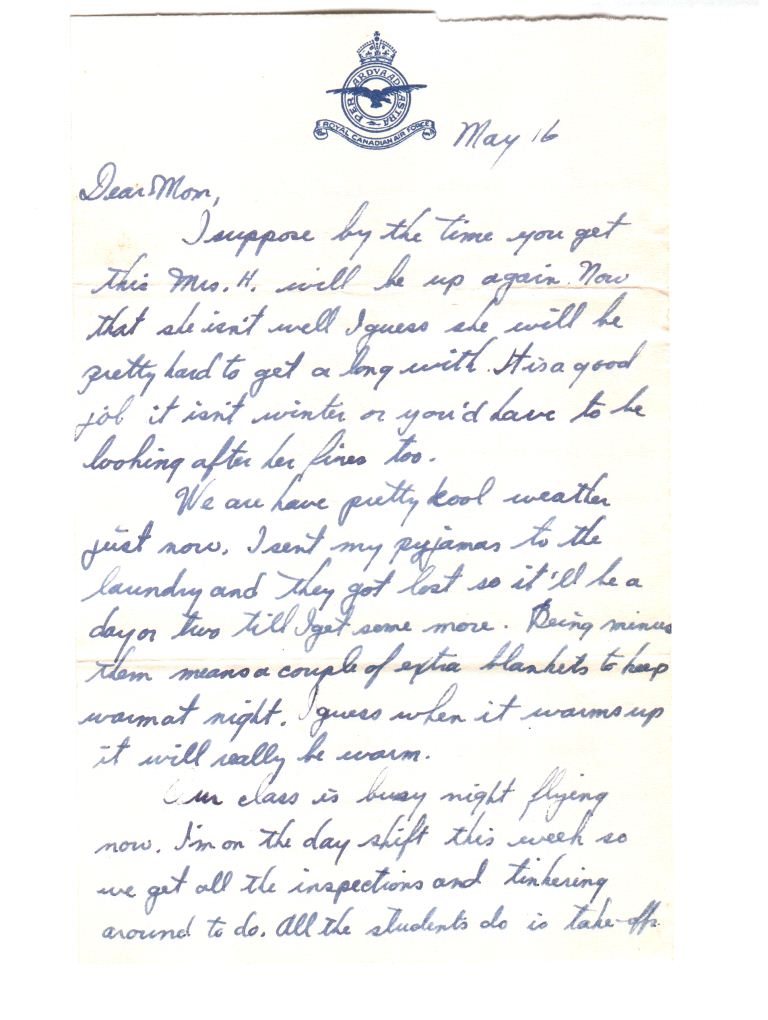 PER ARDVA AD ASTRA
ROYAL CANADIAN AIR FORCE
May 16
Dear Mom,
I suppose by the time you get
this Mrs. H. will be up again. Now
that she isn't well I guess she will be
pretty hard to get a long with. It is a good
job it isn't winter or you'd have to be
looking after her fires too.
We are have pretty kool weather
just now. I sent my pyjamas to the
laundry and they got lost so it'll be a
day or two till I get some more. Being minus
them means a couple of extra blankets to keep
warm at night. I guess when it warms up
it will really be warm.
Our class is busy night flying
now. I'm on the day shift this week so
we get all the inspections and tinkering
around to do. All the students do is take-offs